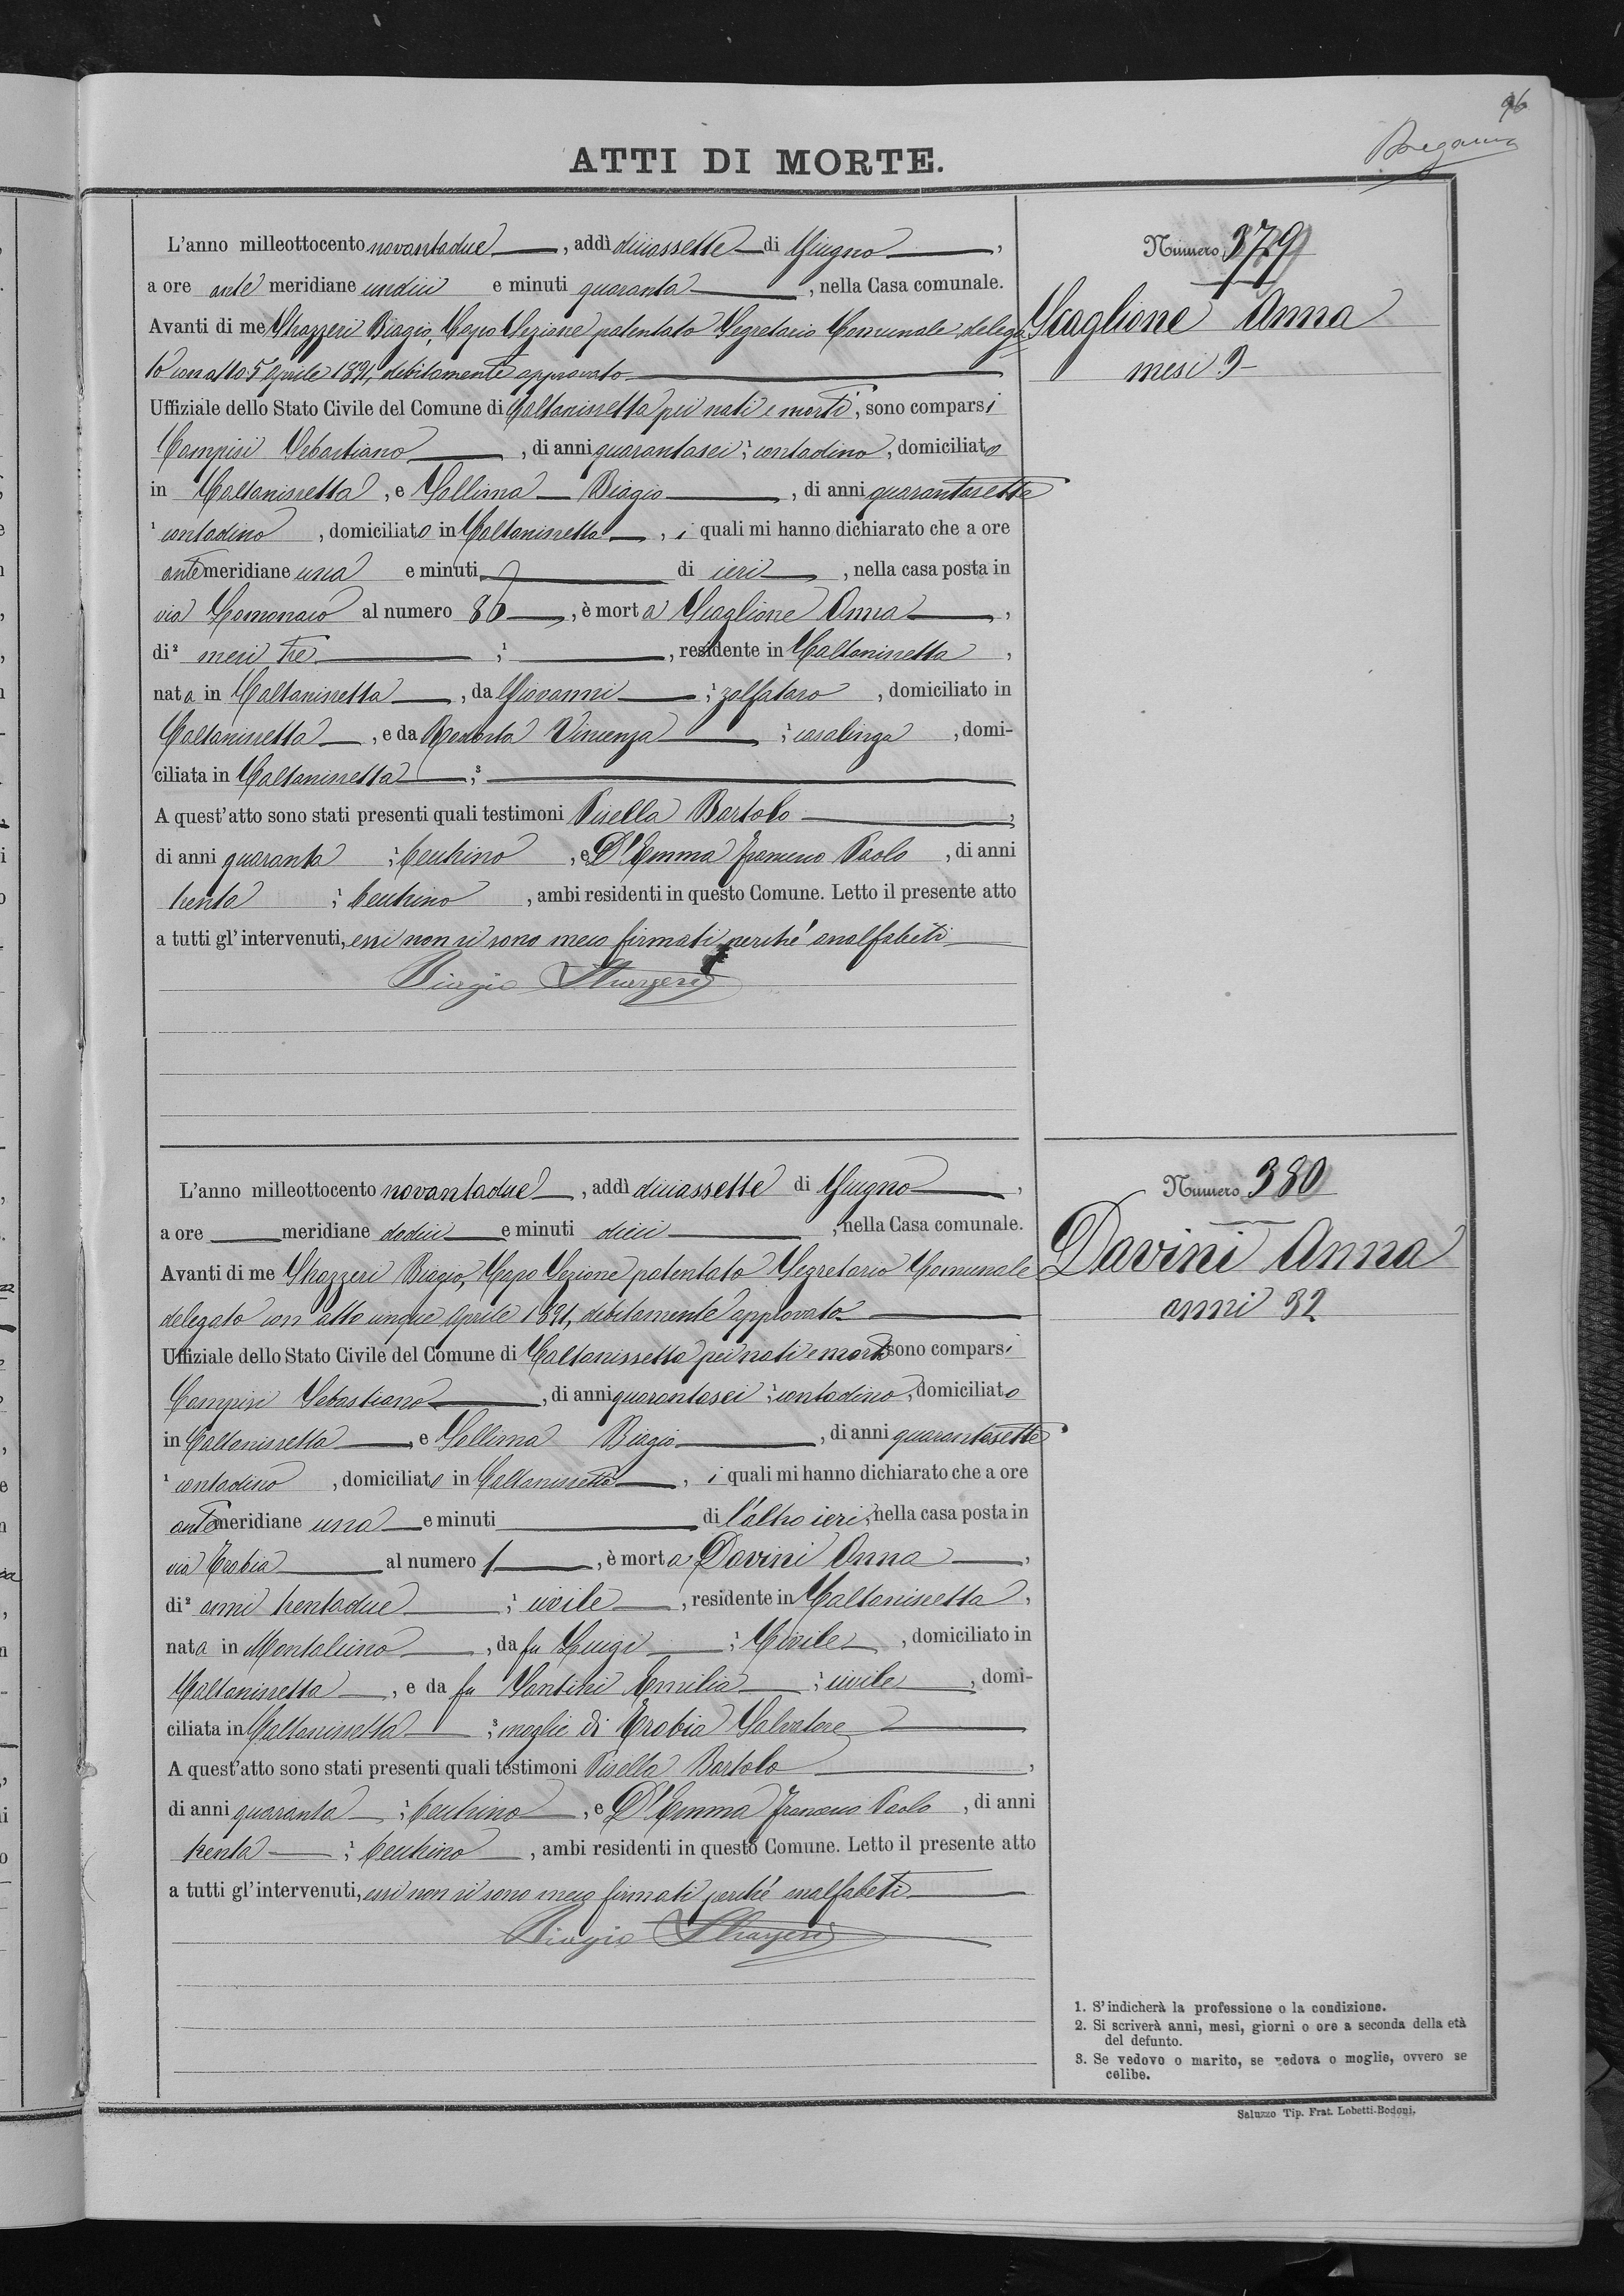 96
ATTI DI MORTE.
L'anno milleottocento novantadue, addì diciassette di Giugno,
a ore ante meridiane undici e minuti quaranta, nella Casa comunale.
Avanti di me Strazzeri Biagio, Capo Sezione patentato Segretario Comunale delega
to con atto 5 Aprile 1891, debitamente approvato
Uffiziale dello Stato Civile del Comune di Caltanissetta pei nati e morti, sono comparsi
Campisi Sebastiano, di anni quarantasei; ¹ contadino, domiciliato
in Caltanissetta, e Sollima Biagio, di anni quarantasette
¹ contadino, domiciliato in Caltanissetta, i quali mi hanno dichiarato che a ore
antemeridiane una e minuti di ieri, nella casa posta in
via al numero 86, è morta Scaglione Anna,
di² mesi tre ;¹ , residente in Caltanissetta,
nata in Caltanissetta, da Giovanni ;¹ zolfataro, domiciliato in
Caltanissetta, e da Vincenza ;¹ casalinga, domi-
ciliata in Caltanissetta ;³
A quest'atto sono stati presenti quali testimoni Pisella Bartolo,
di anni quaranta ;¹ becchino, e D'Emma Francesco Paolo, di anni
trenta ;¹ becchino, ambi residenti in questo Comune. Letto il presente atto
a tutti gl'intervenuti, essi non si sono meco firmati perché analfabeti
Biagio Strazzeri
Numero 379
Scaglione Anna
mesi 3
L'anno milleottocento novantadue, addì diciassette di Giugno,
a ore meridiane dodici e minuti dieci, nella Casa comunale.
Avanti di me Strazzeri Biagio, Capo Sezione patentato Segretario Comunale
delegato con atto cinque Aprile 1891, debitamente approvato
Uffiziale dello Stato Civile del Comune di Caltanissetta pei nati e morti sono comparsi
Campisi Sebastiano, di anni quarantasei ;¹ contadino, domiciliato
in Caltanissetta, e Sollima Biagio, di anni quarantasette
¹ contadino, domiciliato in Caltanissetta, i quali mi hanno dichiarato che a ore
antemeridiane una e minuti di l'altro ieri, nella casa posta in
via Trobia al numero 1, è morta Davini Anna,
di² anni trentadue ;¹ civile, residente in Caltanissetta,
nata in Montalcino, da fu Luigi ;¹ Civile, domiciliato in
Caltanissetta, e da fu Santini Emilia ;¹ civile, domi-
ciliata in Caltanissetta ;³ moglie di Trobia Salvatore
A quest'atto sono stati presenti quali testimoni Pisella Bartolo,
di anni quaranta ;¹ becchino, e D'Emma Francesco Paolo, di anni
trenta ;¹ becchino, ambi residenti in questo Comune. Letto il presente atto
a tutti gl'intervenuti, essi non si sono meco firmati perché analfabeti
Biagio Strazzeri
Numero 380
Davini Anna
anni 32
1. S'indicherà la professione o la condizione.
2. Si scriverà anni, mesi, giorni o ore a seconda della età
del defunto.
3. Se vedovo o marito, se vedova o moglie, ovvero se
celibe.
Saluzzo Tip. Frat. Lobetti-Bodoni.